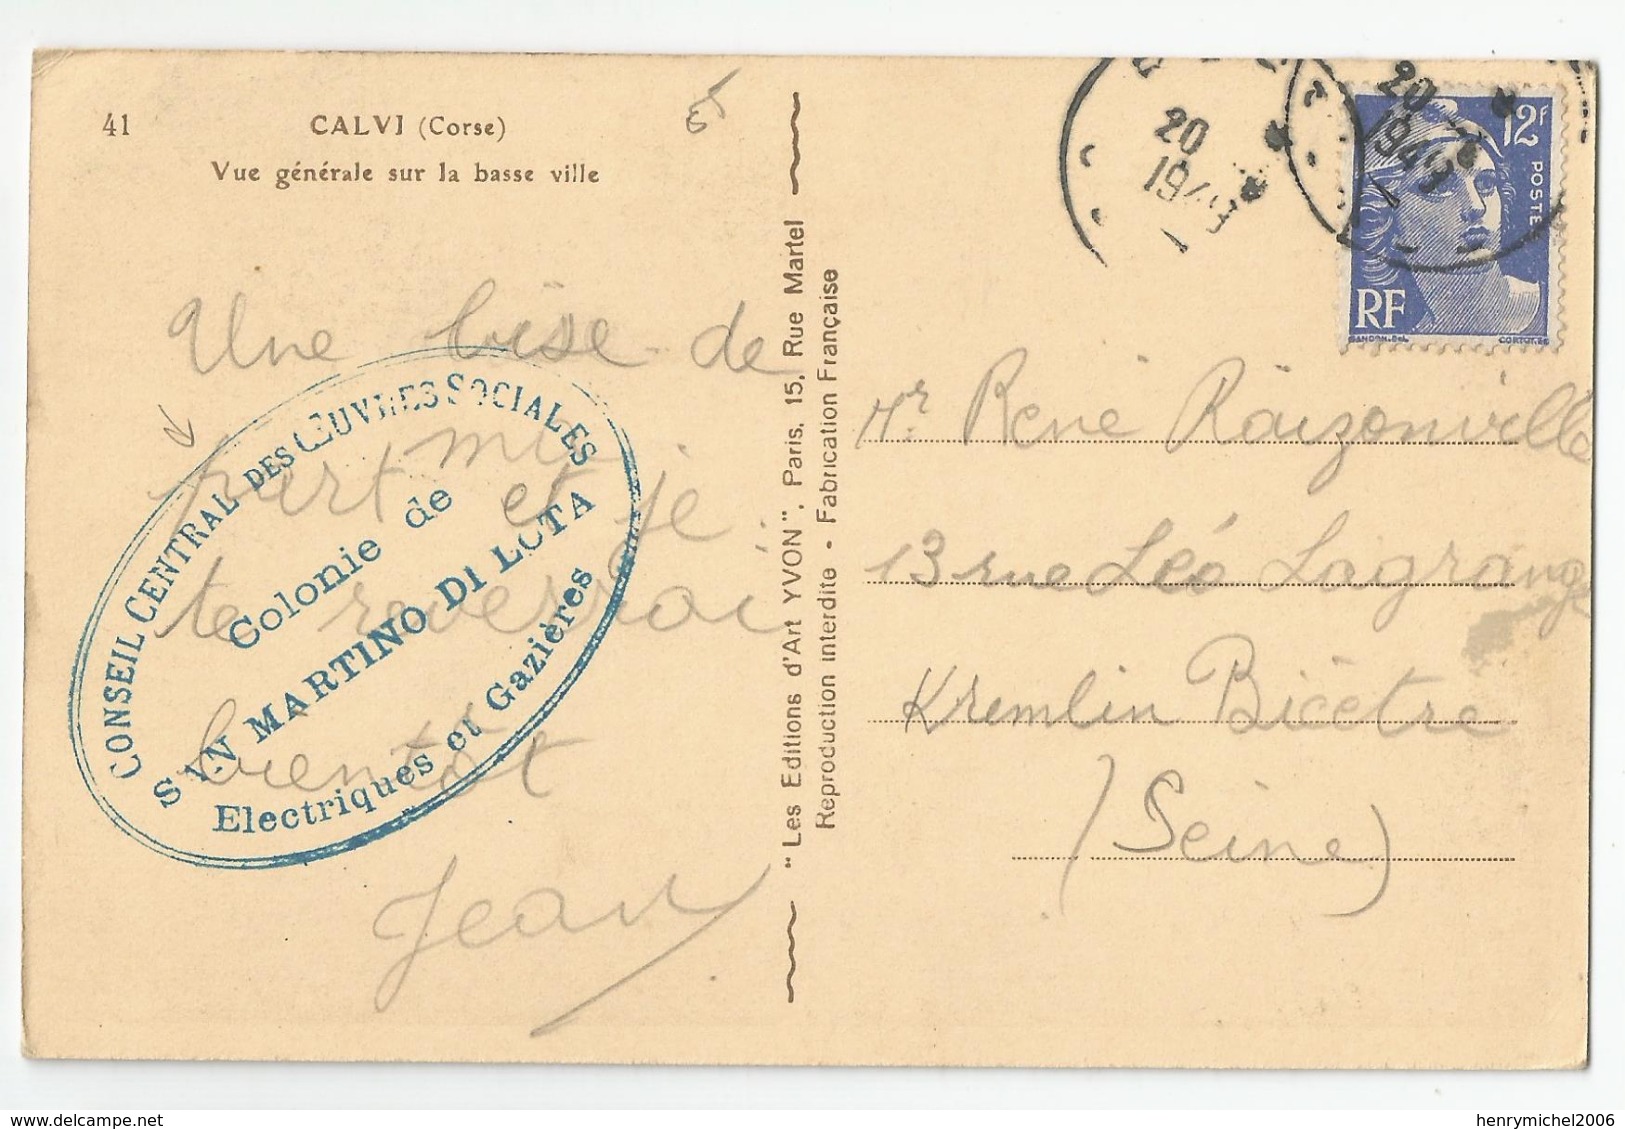 41
CALVI (Corse)
Vue générale sur la basse ville
65
Une bise de
ma
part et je
te reverrai
bientôt
Jean
CONSEIL CENTRAL DES ŒUVRES SOCIALES
Colonie de
SAN MARTINO DI LOTA
Electriques et Gazières
"Les Editions d'Art YVON", Paris, 15, Rue Martel
Reproduction interdite - Fabrication Française
20
1949
20
1949
12F
POSTES
RF
GANDON.DEL
CORTOT.SC
Mr. René Raizonville
13 rue Léo Lagrange
Kremlin Bicêtre
(Seine)
henrymichel2006